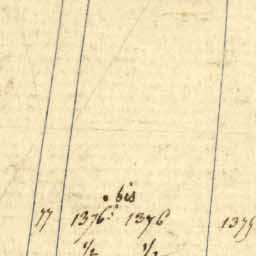 bis
77 1376 1376 137
1/2 1/2